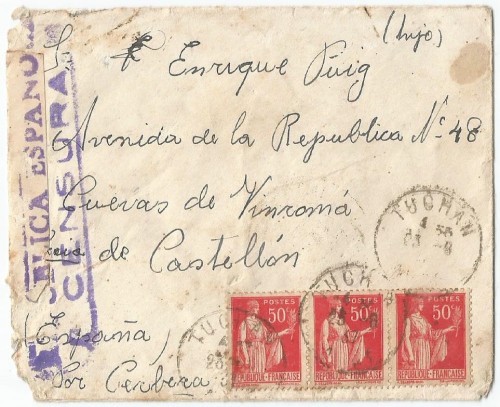 (hijo)
Enrique Puig
Avenida de la Republica Nº 48
Cuevas de Vinromá
de Castellón
(España)
Por Cerbera
BLICA ESPAÑO
CENSURA
TUCHAN
TUCH
TUCHAN
POSTES
50c
REPUBLIQUE-FRANÇAISE
POSTES
50c
REPUBLIQUE-FRANÇAISE
POSTES
50c
REPUBLIQUE-FRANÇAISE